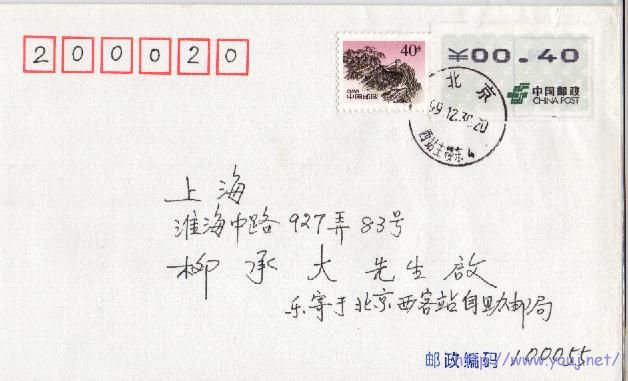 200020
40分
中国邮政
¥00.40
中国邮政
CHINA POST
北京
99.12.30.20
上海
淮海中路927弄83号
柳承大先生启
乐寄于北京西客站自助邮局
邮政编码 100055
http://www.youj.net/